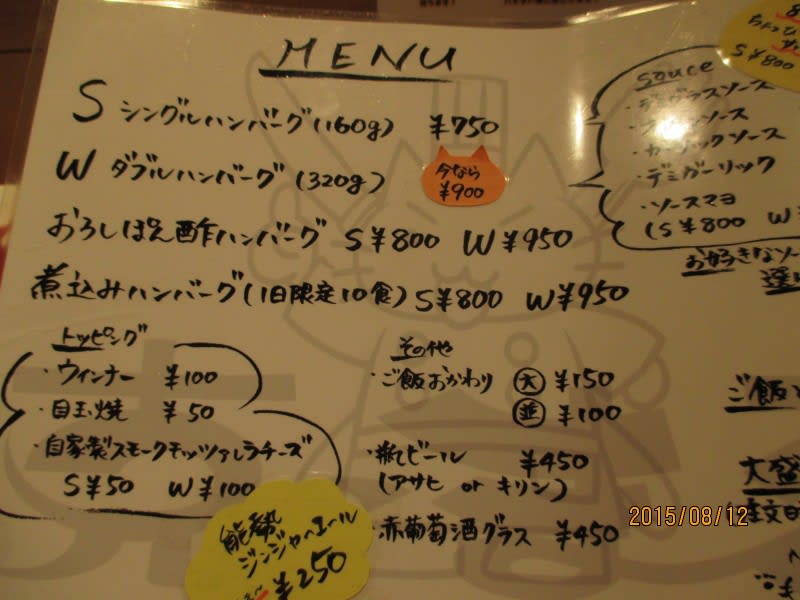 MENU
S シングルハンバーグ(160g) ¥750
W ダブルハンバーグ(320g)
今なら
¥900
おろしぽん酢ハンバーグ S¥800 W¥950
煮込みハンバーグ(1日限定10食) S¥800 W¥950
トッピング
・ウィンナー ¥100
・目玉焼 ¥50
・自家製スモークモッツァレラチーズ
S¥50 W¥100
能勢
ジンジャーエール
¥250
その他
・ご飯おかわり 大 ¥150
並 ¥100
・瓶ビール ¥450
(アサヒ or キリン)
・赤葡萄酒グラス ¥450
Sauce
・デミグラスソース
ソース
・ガーリックソース
・デミガーリック
・ソースマヨ
(S¥800 W
お好きなソー
選
S¥800
ご飯
大盛
注文
2015/08/12